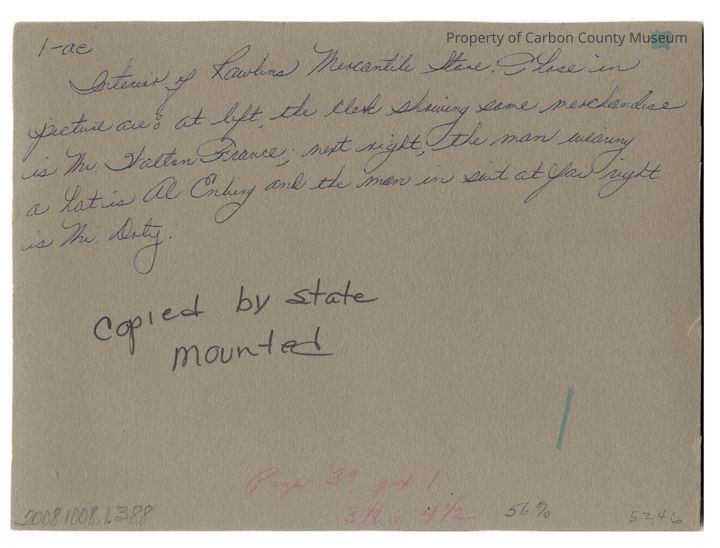 Property of Carbon County Museum
1-ac
Interior of Rawlins Mercantile Store. Those in
picture are: at left, the clerk showing some merchandise
is Mr. Halton France; next right, the man wearing
a hat is Al Enberg and the man in suit at far right
is Mr. Doty.
Copied by state
mounted
Page 39 pot 1
3 1/8 x 4 1/2
56%
2008.1008.1.388
5246